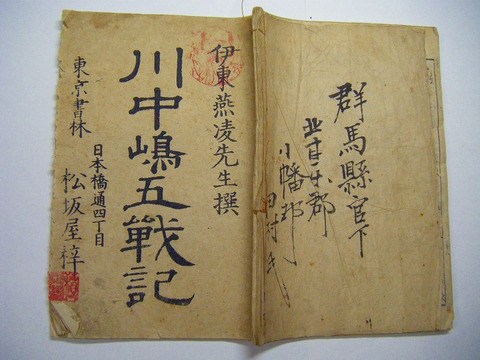 群馬縣官下
北甘楽郡
小幡邨
田村氏
伊東燕凌先生撰
川中嶋五戰記
東京書林
日本橋通四丁目
松坂屋梓